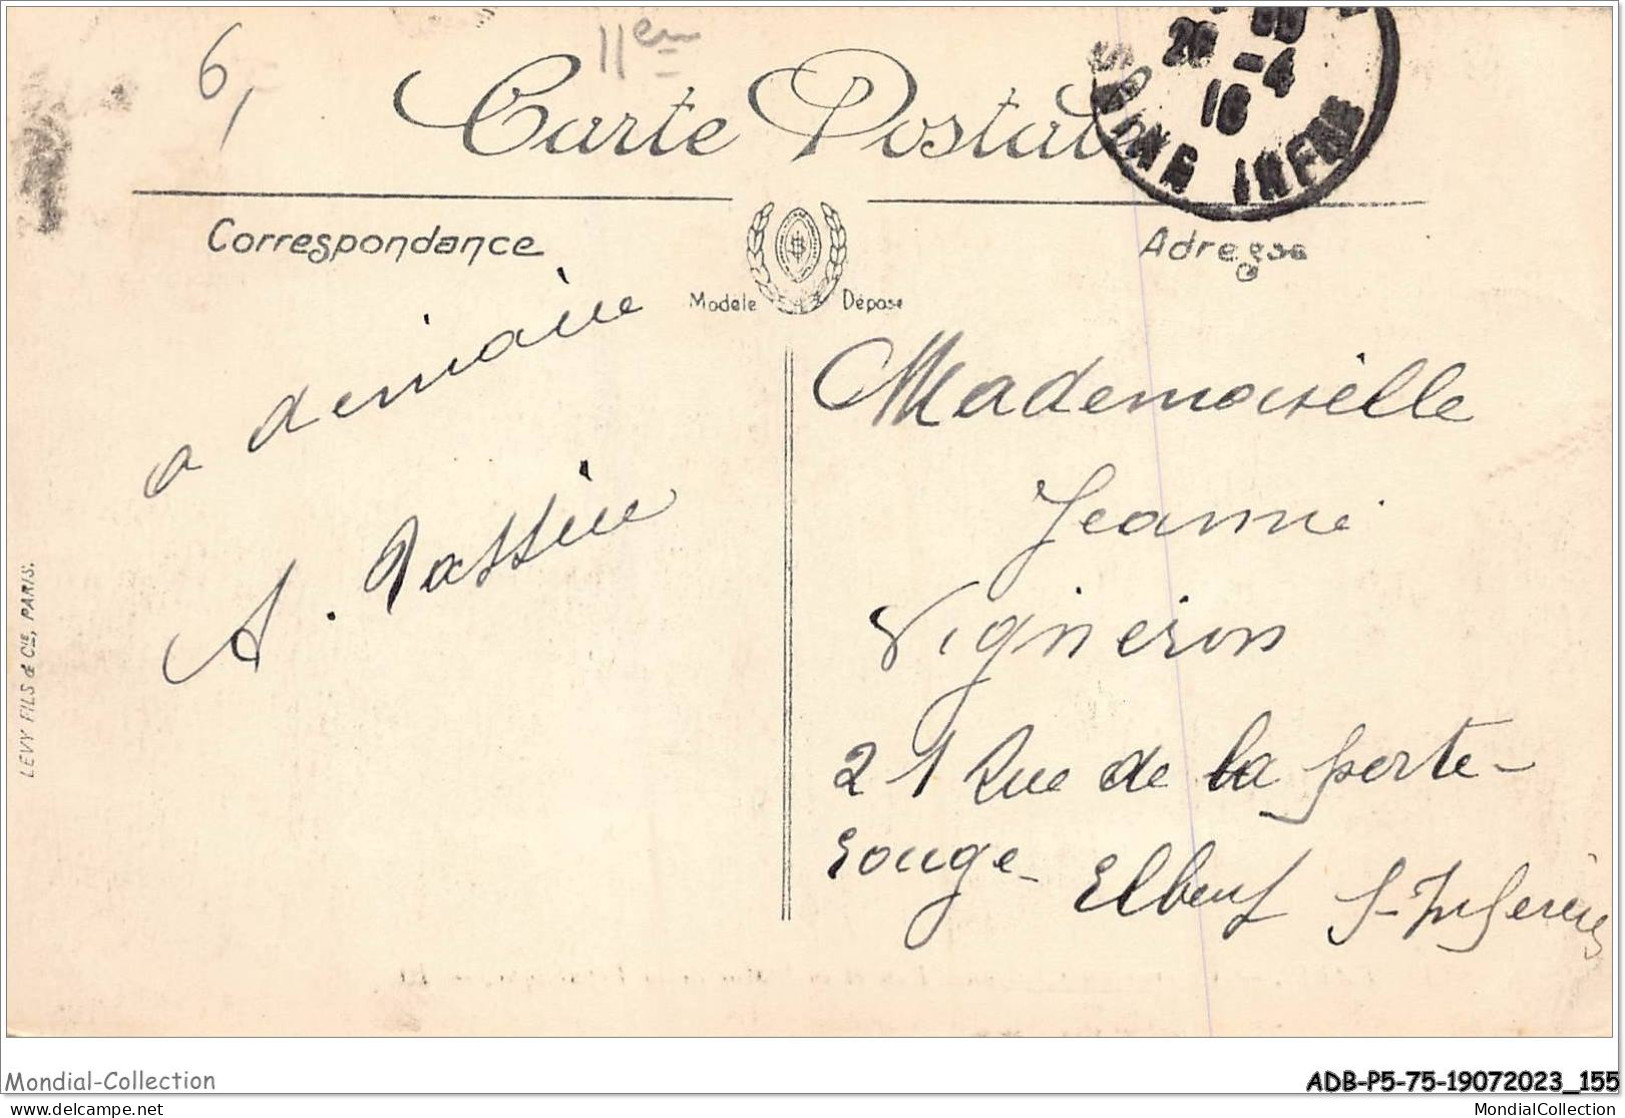 6,
11em
Carte Postale
20
-4
16
SEINE INFRE
Correspondance
Adresse
Modèle Déposé
a demain
A. Tassin
Mademoiselle
Jeanne
Vigneron
21 Rue de la porte-
rouge- Elbeuf S-Inferieure
LEVY FILS & CIE, PARIS.
Mondial-Collection
ADB-P5-75-19072023_155
www.delcampe.net
MondialCollection